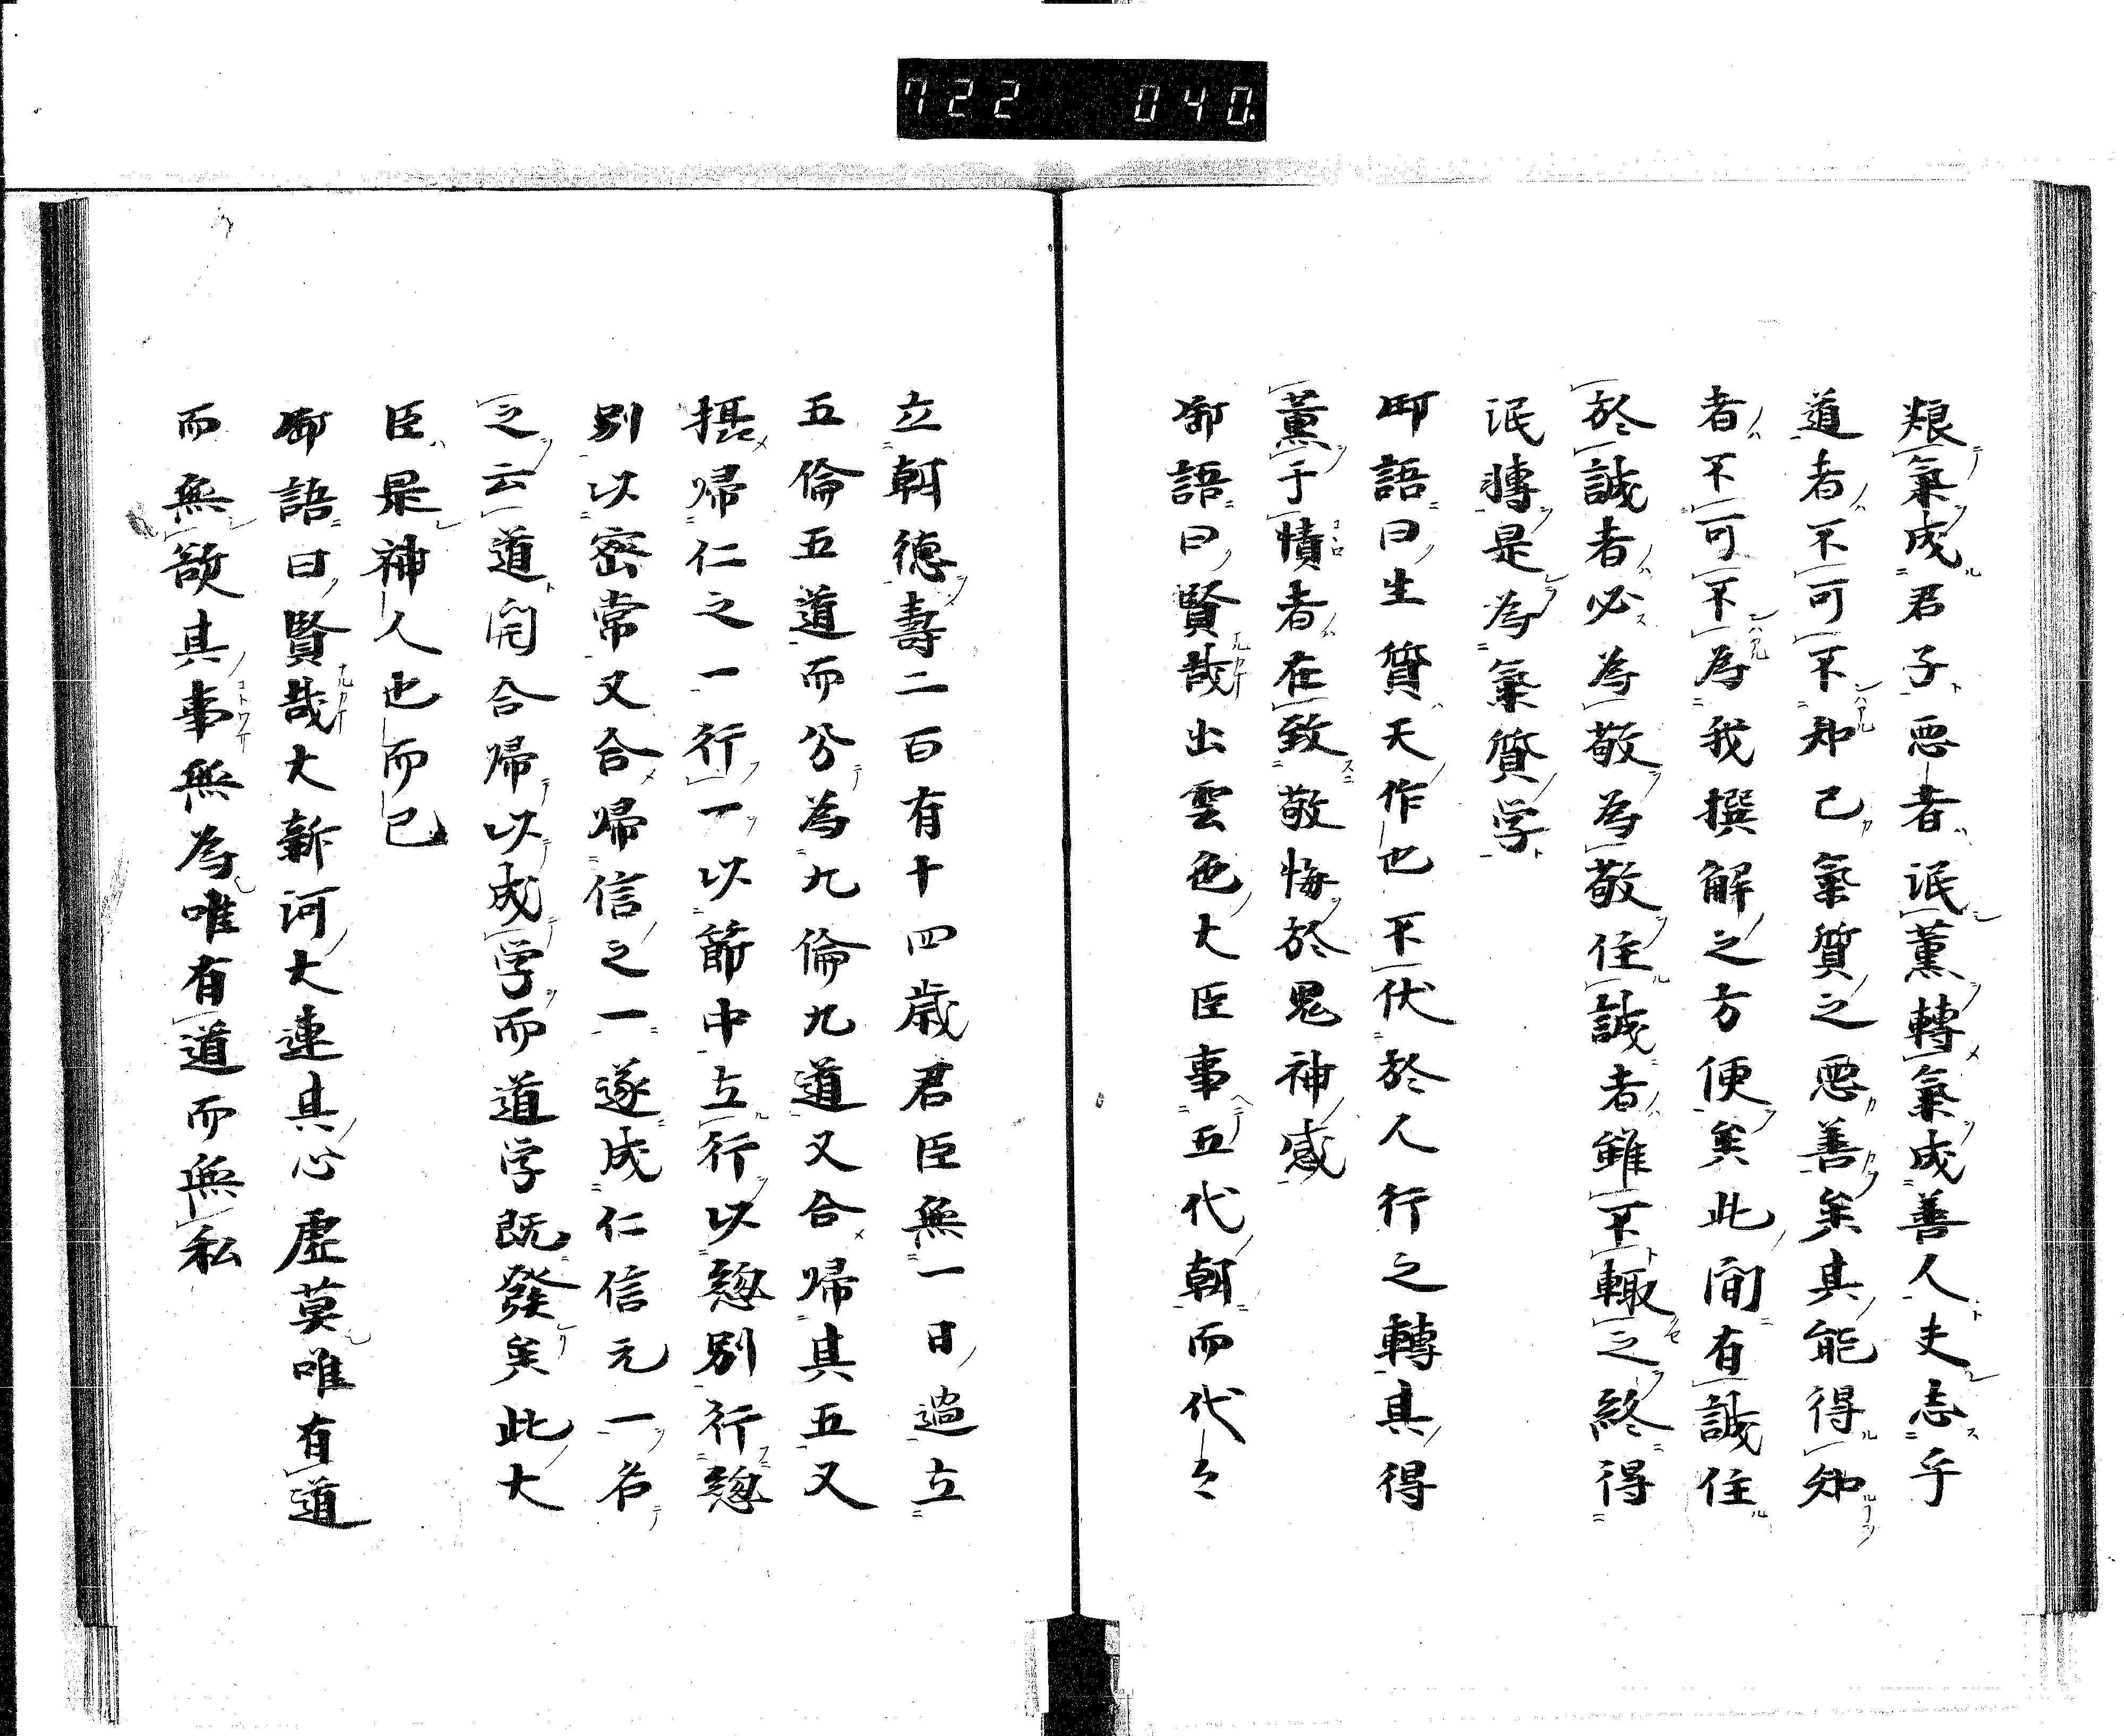 722 040
艱氣成君子惡者泯薰轉氣成善人夫志乎
道者不可不知己氣質之惡善矣其能得知
者不可不為我撰解之方便矣此間有誠住
於誠者必為敬為敬住誠者雖不輙之終得
泯轉是為氣質学
御語曰生質天作也不伏於人行之轉其得
薰于憤者在致敬悔於鬼神感
御語曰賢哉出雲色大臣事五代朝而代々
立朝徳壽二百有十四歳君臣無一日過立
五倫五道而分為九倫九道又合帰其五又
摂帰仁之一行一以節中立行以惣別行惣
別以密常又合帰信之一遂成仁信元一名
之云道開合帰以成学而道学既發矣此大
臣是神人也而已
御語曰賢哉大新河大連其心虚莫唯有道
而無欲其事無為唯有道而無私